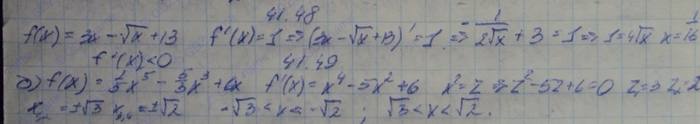 41.48
f(x) = 3x - √x + 13 f'(x) = 1 => (3x - √x + 13)' = 1 => - 1/(2√x) + 3 = 1 => 1 = 4√x x = 1/16
f'(x) < 0 41.49
б) f(x) = 1/5 x⁵ - 5/3 x³ + 6x f'(x) = x⁴ - 5x² + 6 x² = z => z² - 5z + 6 = 0 z₁ = 3 z₂ = 2
x₁,₂ = ±√3 x₃,₄ = ±√2 -√3 < x < -√2 ; √3 < x < √2.